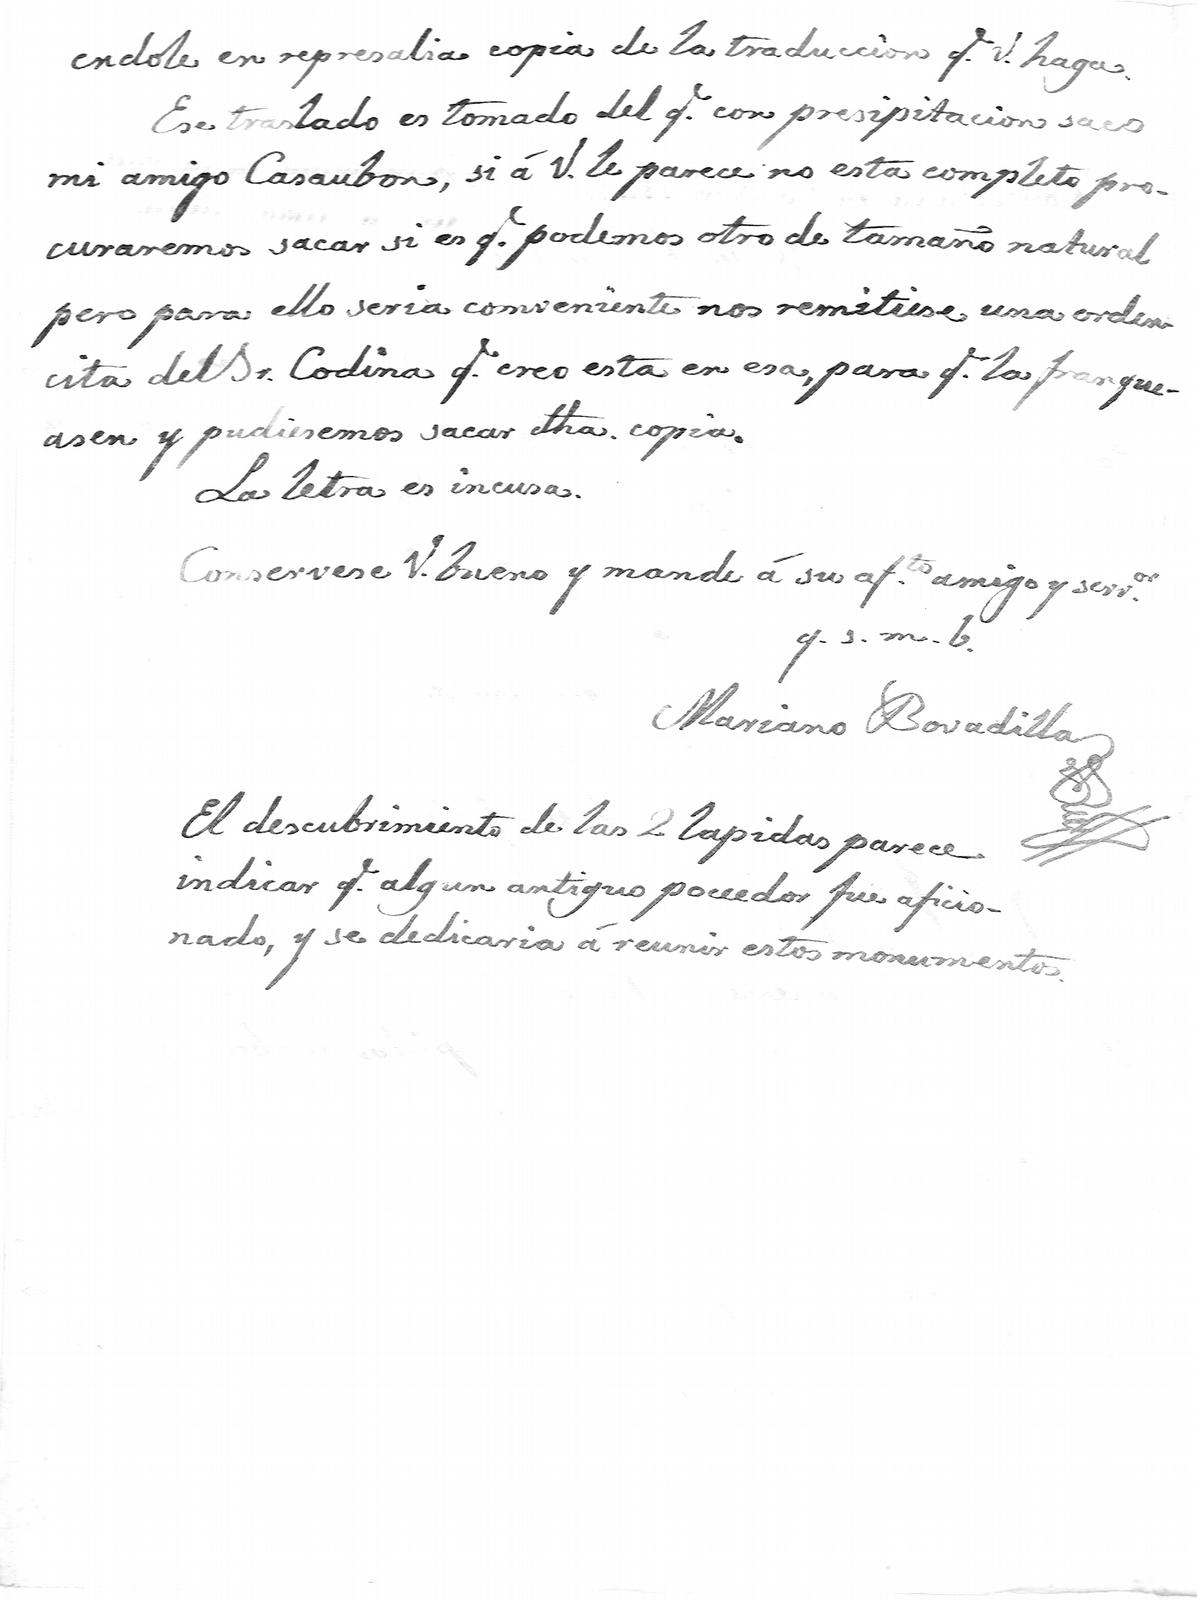 endole en represalia copia de la traduccion q.e V. haga.
Ese traslado es tomado del q.e con presipitacion saco
mi amigo Casaubon, si á V. le parece no esta completo pro-
curaremos sacar si es q.e podemos otro de tamaño natural
pero para ello seria conveniente nos remitiese una orden-
cita del Sr. Codina q.e creo esta en esa, para q.e la franque-
asen y pudiesemos sacar dha. copia.
La letra es incusa.
Conservese V. bueno y mande á su af.to amigo y serv.or
q. s. m. b.
Mariano Bovadilla
El descubrimiento de las 2 lapidas parece
indicar q.e algun antiguo poceedor fue aficio-
nado, y se dedicaria á reunir estos monumentos.